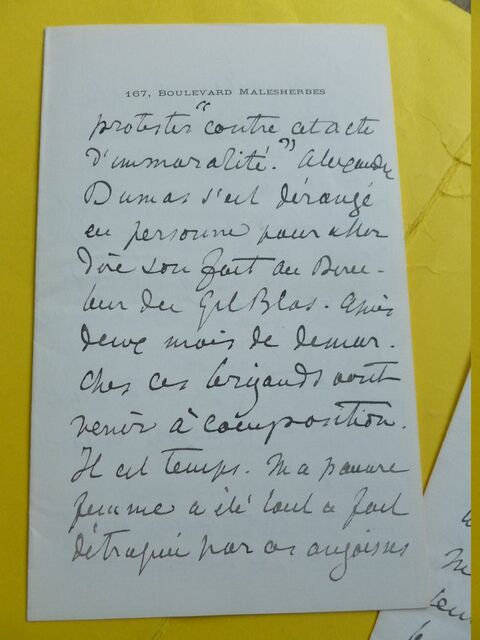 167, BOULEVARD MALESHERBES
protester "contre cet acte
d'immoralité." Alexandre
Dumas s'est dérangé
en personne pour aller
dire son fait au Direc-
teur du Gil Blas. Après
deux mois de démar-
ches ces brigands vont
venir à composition.
Il est temps. Ma pauvre
femme a été tout à fait
détraquée par ces angoisses